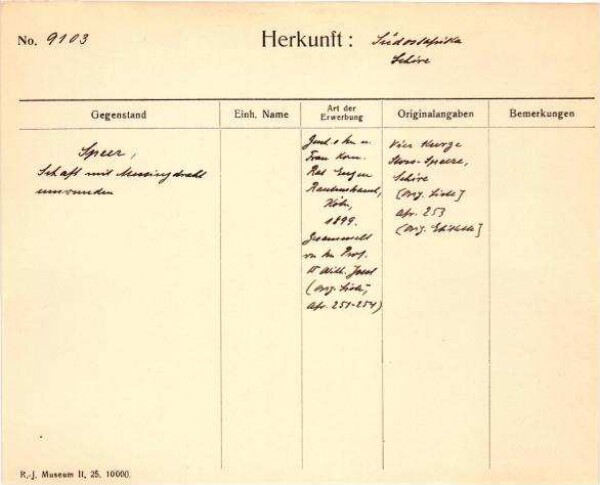 No. 9103
Herkunft: Südostafrika
Schire
Gegenstand
Einh. Name
Art der Erwerbung
Originalangaben
Bemerkungen
Speer,
Schaft mit Messingdraht
umwunden
Gesch. v. Hn. u.
Frau Kom.
Rat Eugen
Rautenstrauch,
Köln,
1899.
Gesammelt
von Hn. Prof.
Dr Wilh. Joest
(Orig. Liste,
Afr. 251-254)
Vier kurze
Stoss-Speere,
Schire
[Orig. Liste]
Afr. 253
[Orig. Etikette]
R.-J. Museum II, 25. 10000.